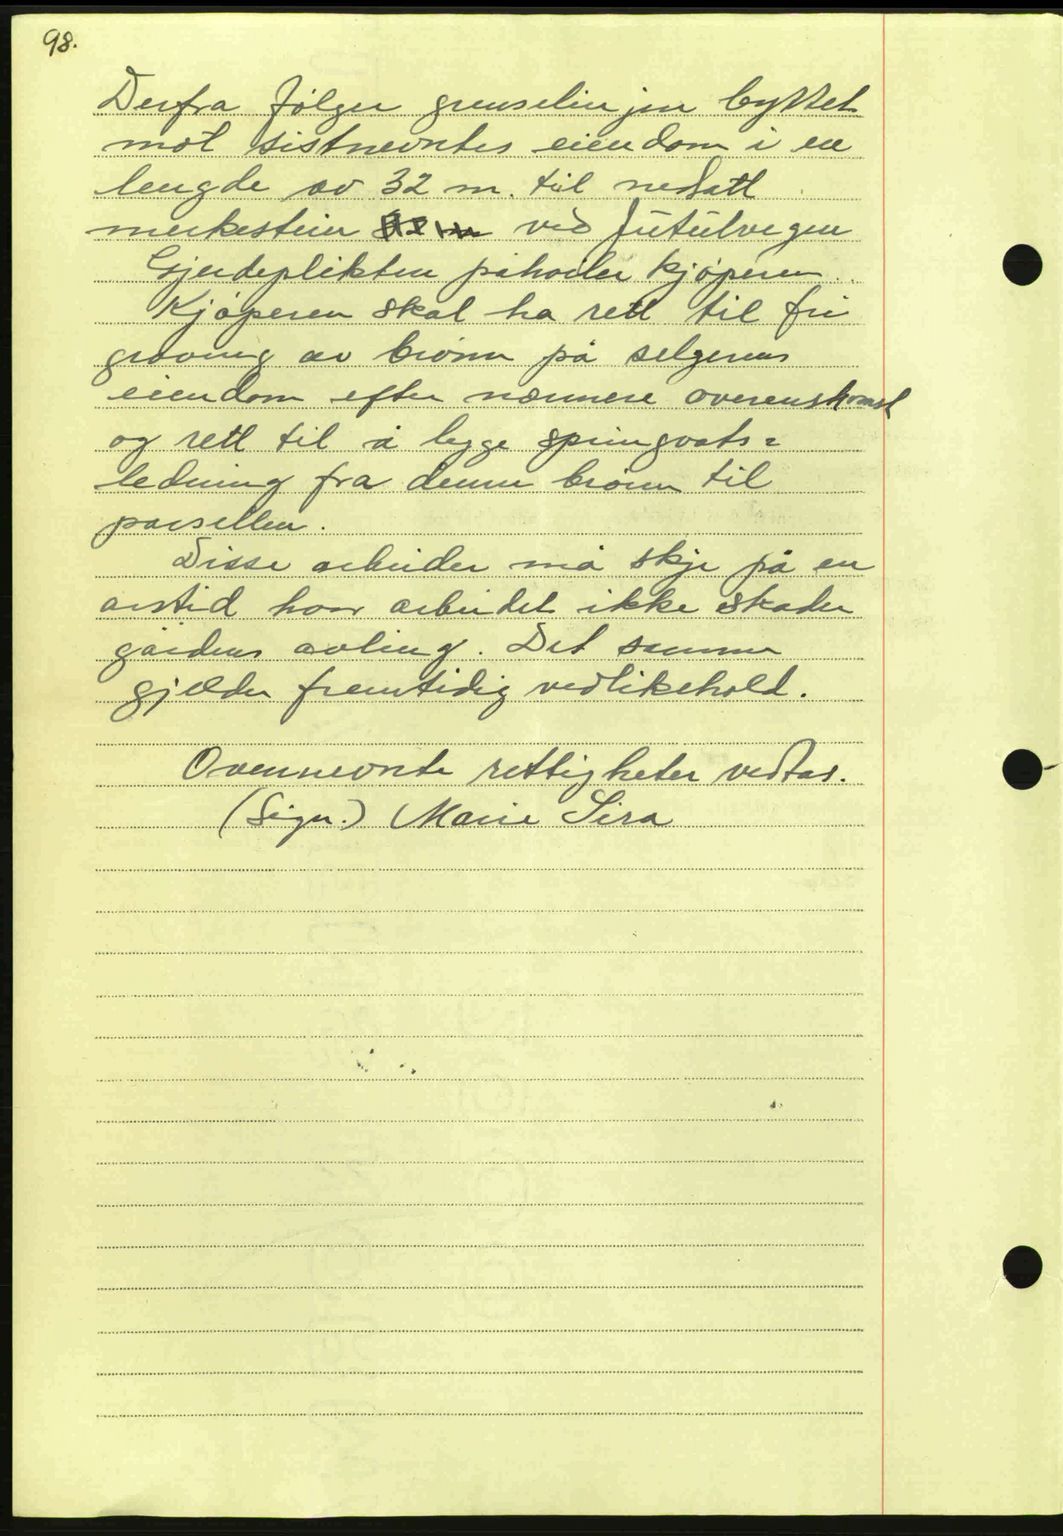 98.
Derfra følger grenselinjen byttet
mot sistnevntes eiendom i en
lengde av 32 m. til nedsatt
merkestein ved Jutulvegen
Gjerdeplikten påhviler kjøperen.
Kjøperen skal ha rett til fri
graving av brønn på selgerens
eiendom efter nærmere overenskomst
og rett til å legge springvats=
ledning fra denne brønn til
parsellen.
Disse arbeider må skje på en
årstid hvor arbeidet ikke skader
gårdens avling. Det samme
gjelder fremtidig vedlikehold.
Ovennevnte rettigheter vedtas.
(Sign.) Marie Sira